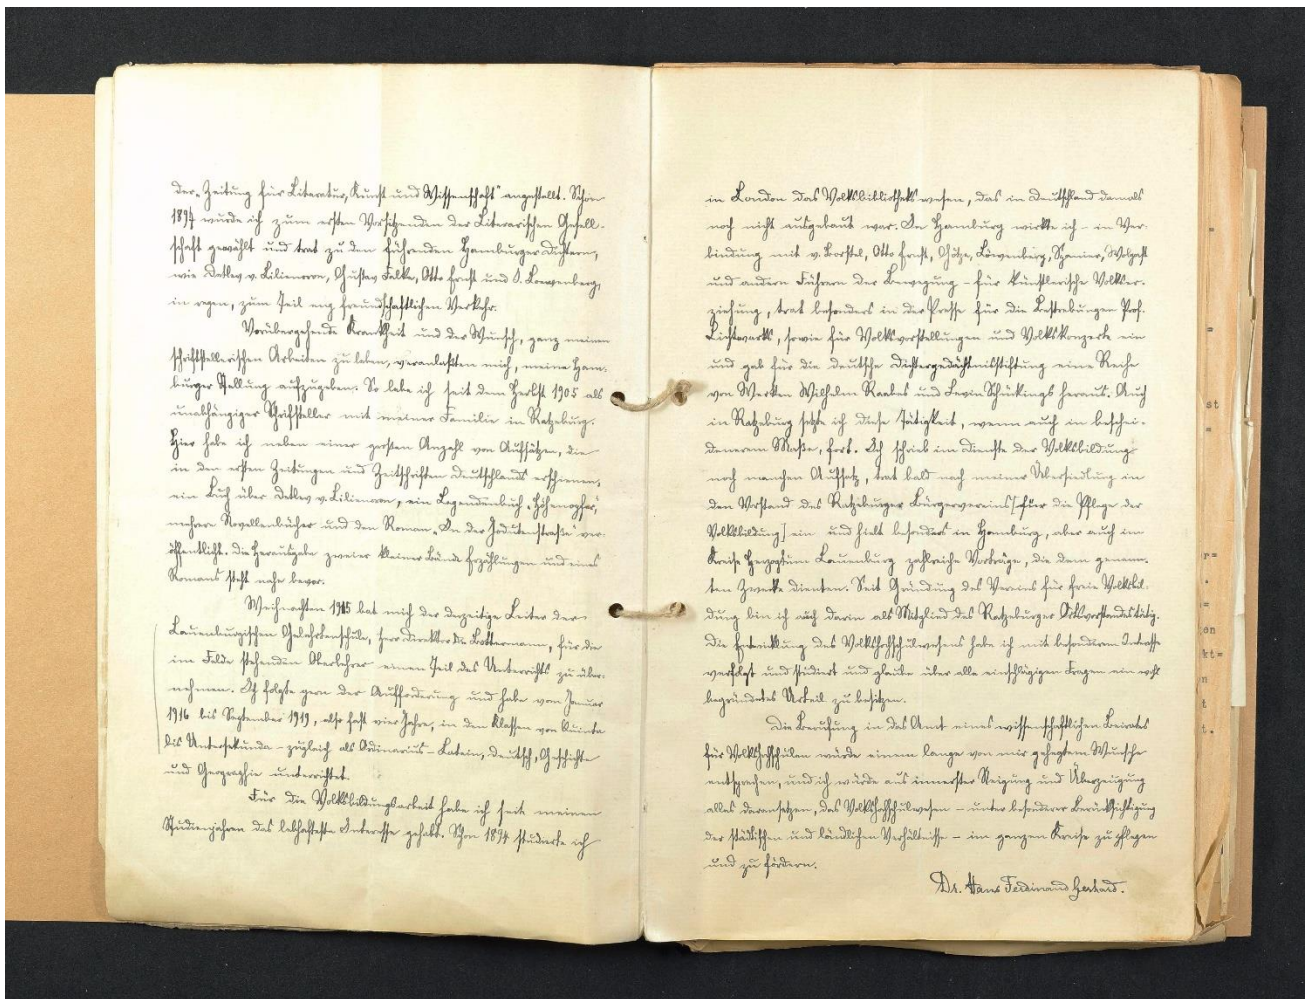 der „Zeitung für Literatur, Kunst und Wissenschaft" angestellt. Schon
1894 wurde ich zum ersten Vorsitzenden der Literarischen Gesell-
schaft gewählt und trat zu den führenden Hamburger Dichtern,
wie Detlev v. Liliencron, Gustav Falke, Otto Ernst und J. Loewenberg,
in regen, zum Teil eng freundschaftlichen Verkehr.
Vorübergehende Krankheit und der Wunsch, ganz meinen
schriftstellerischen Arbeiten zu leben, veranlaßten mich, meine Ham-
burger Stellung aufzugeben. So lebe ich seit dem Herbst 1905 als
unabhängiger Schriftsteller mit meiner Familie in Ratzeburg.
Hier habe ich neben einer großen Anzahl von Aufsätzen, die
in den ersten Zeitungen und Zeitschriften Deutschlands erschienen,
ein Buch über Detlev v. Liliencron, ein Legendenbuch „Höhenopfer",
mehrere Novellenbücher und den Roman „In der Jodutenstraße" ver-
öffentlicht. Die Herausgabe zweier kleiner Bände Erzählungen und eines
Romans steht nahe bevor.
Weihnachten 1915 bat mich der derzeitige Leiter der
Lauenburgischen Gelehrtenschule, Herr Direktor Dr. Bottermann, für die
im Felde stehenden Oberlehrer einen Teil des Unterrichts zu über-
nehmen. Ich folgte gern der Aufforderung und habe von Januar
1916 bis September 1919, also fast vier Jahre, in den Klassen von Quinta
bis Untersekunda – zugleich als Ordinarius – Latein, Deutsch, Geschichte
und Geographie unterrichtet.
Für die Volksbildungsarbeit habe ich seit meinen
Studienjahren das lebhafteste Interesse gehabt. Schon 1894 studierte ich
in London das Volksbibliothekswesen, das in Deutschland damals
noch nicht ausgebaut war. In Hamburg wirkte ich – in Ver-
bindung mit v. Borstel, Otto Ernst, Götze, Löwenberg, Spanier, Wolgast
und andern Führern der Bewegung – für künstlerische Volkser-
ziehung, trat besonders in der Presse für die Bestrebungen Prof.
Lichtwarks, sowie für Volksvorstellungen und Volkskonzerte ein
und gab für die deutsche Dichtergedächtnisstiftung eine Reihe
von Werken Wilhelm Raabes und Levin Schückings heraus. Auch
in Ratzeburg setzte ich diese Tätigkeit, wenn auch in beschei-
denerem Maße, fort. Ich schrieb im Dienste der Volksbildung
noch manchen Aufsatz, trat bald nach meiner Übersiedlung in
den Vorstand des Ratzeburger Bürgervereins [für die Pflege der
Volksbildung] ein und hielt besonders in Hamburg, aber auch im
Kreise Herzogtum Lauenburg zahlreiche Vorträge, die dem genann-
ten Zwecke dienten. Seit Gründung des Vereins für freie Volksbil-
dung bin ich auch darin als Mitglied des Ratzeburger Ortsvorstandes tätig.
Die Entwicklung des Volkshochschulwesens habe ich mit besonderem Interesse
verfolgt und studiert und glaube über alle einschlägigen Fragen ein wohl
begründetes Urteil zu besitzen.
Die Berufung in das Amt eines wissenschaftlichen Beirates
für Volkshochschulen würde einem lange von mir gehegtem Wunsche
entsprechen, und ich würde aus innerster Neigung und Überzeugung
alles daransetzen, das Volkshochschulwesen – unter besonderer Berücksichtigung
der städtischen und ländlichen Verhältnisse – im ganzen Kreise zu pflegen
und zu fördern.
Dr. Hans Ferdinand Gerhard.